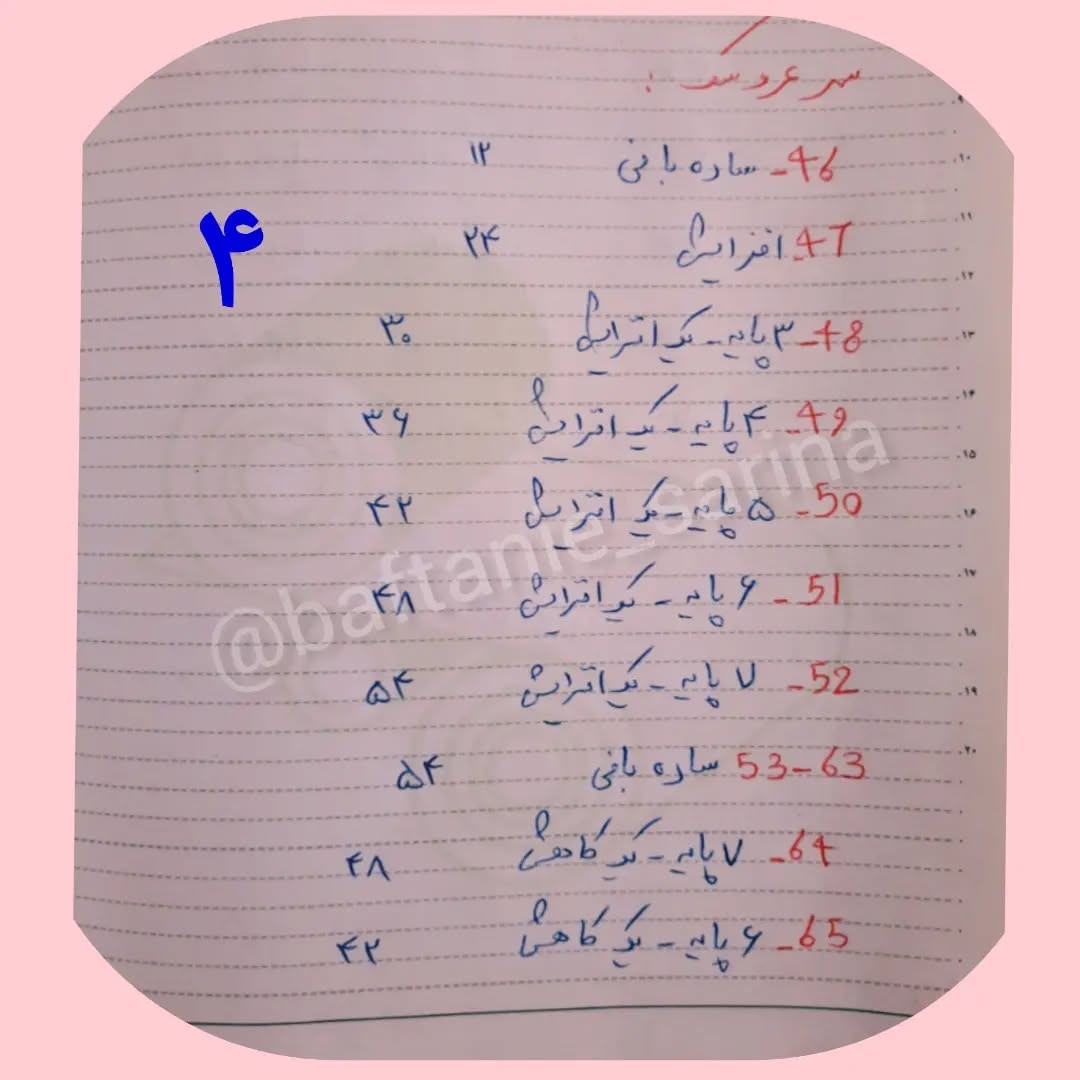 سر عروسک :
46- ساده بافی ۱۲
47- افزایش ۲۴
48- ۳ پایه - یک افزایش ۳۰
49- ۴ پایه - یک افزایش ۳۶
50- ۵ پایه - یک افزایش ۴۲
51- ۶ پایه - یک افزایش ۴۸
52- ۷ پایه - یک افزایش ۵۴
53-63 ساده بافی ۵۴
64- ۷ پایه - یک کاهش ۴۸
65- ۶ پایه - یک کاهش ۴۲
۴
@baftanie_sarina
۹
۱۰
۱۱
۱۲
۱۳
۱۴
۱۵
۱۶
۱۷
۱۸
۱۹
۲۰